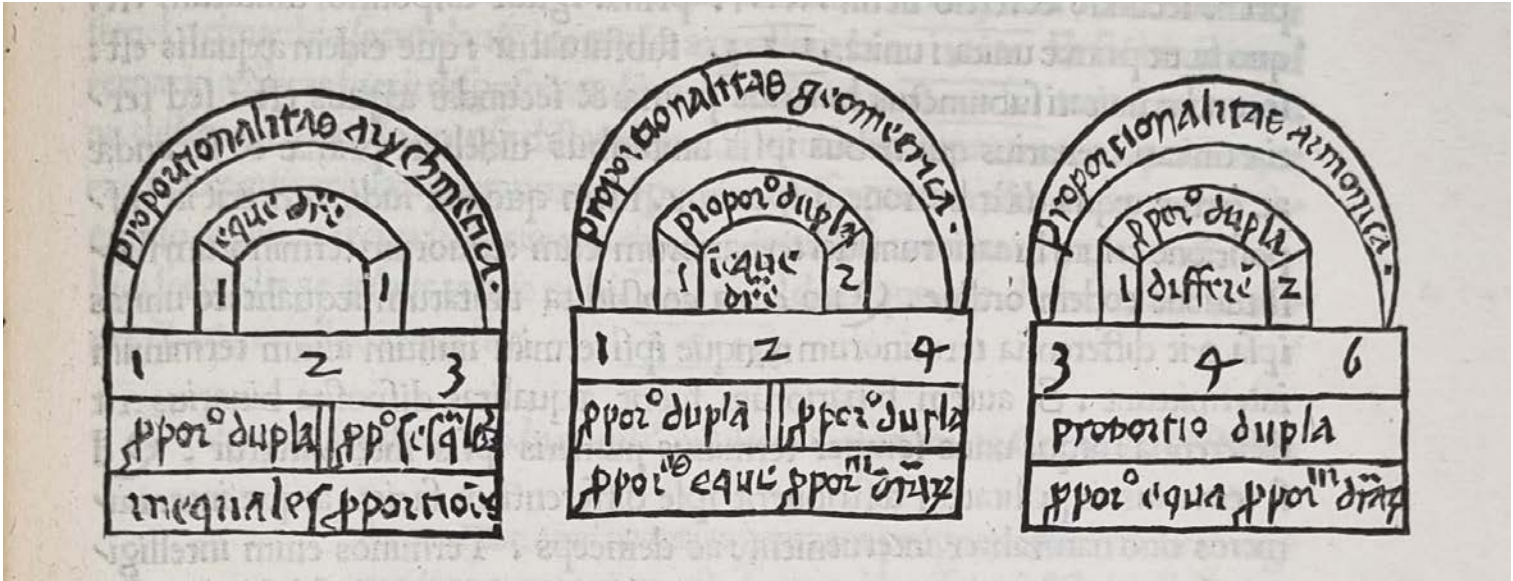 proportionalitas arychmetica.
eque dr̄e
1 1
1 2 3
ꝓporº dupla ꝓpº
inequales ꝓportiones
proportionalitas geometrica.
proporº dupla
1 īeque dr̄e 2
1 2 4
ꝓporº dupla ꝓporº dupla
eque
proportionalitas armonica.
ꝓporº dupla
1 differē 2
3 4 6
proportio dupla
ꝓporº equa